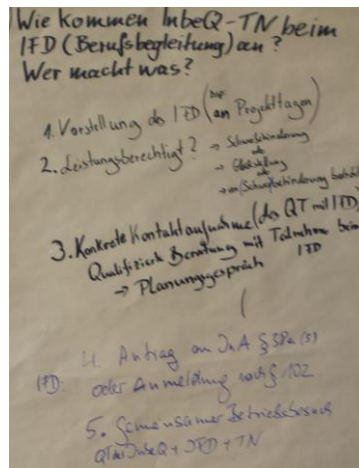 Wie kommen InbeQ-TN beim
IFD (Berufsbegleitung) an?
Wer macht was?
1. Vorstellung des IFD (bsp. an Projekttagen)
2. Leistungsberechtigt? → Schwerbehinderung
od.
→ Gleichstellung
od.
→ von (Schwer)behinderung
3. Konkrete Kontaktaufnahme (des QT mit IFD)
Qualifizierte Beratung mit Teilnehmer beim
IFD
→ Planungsgespräch
4. Antrag an InA § 38a (5)
IFD: oder Anmeldung nach § 102
5. Gemeinsamer Betriebsbesuch
QT InbeQ + IFD + TN